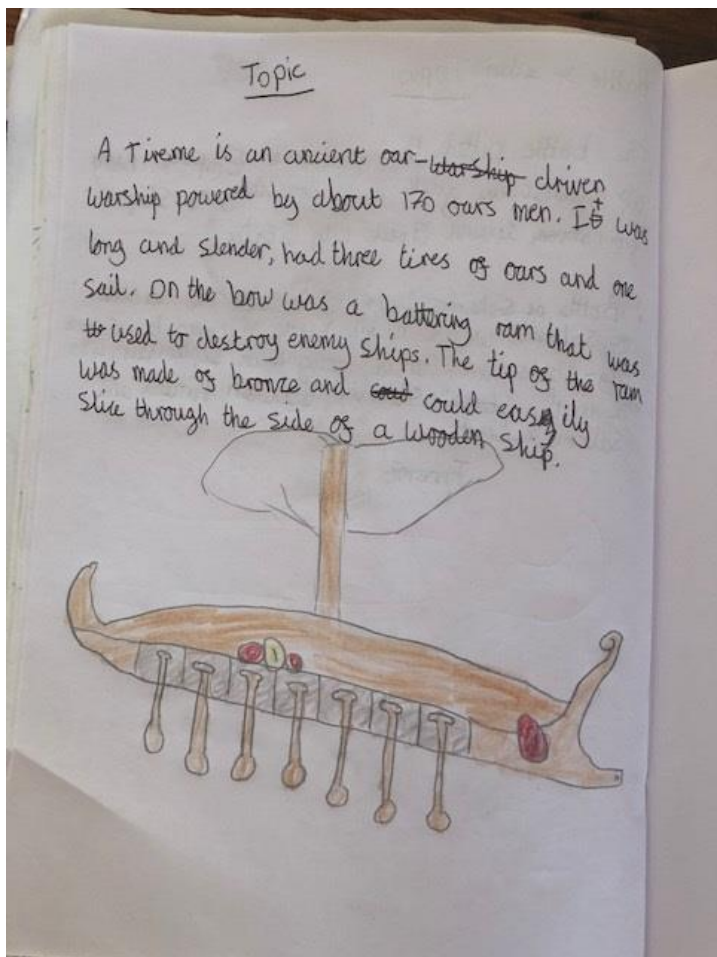 Topic
A Tireme is an ancient oar-warship driven
warship powered by about 170 oars men. It was
long and slender, had three tires of oars and one
sail. On the bow was a battering ram that was
to used to destroy enemy ships. The tip of the ram
was made of bronze and coud could easily
slice through the side of a wooden ship.